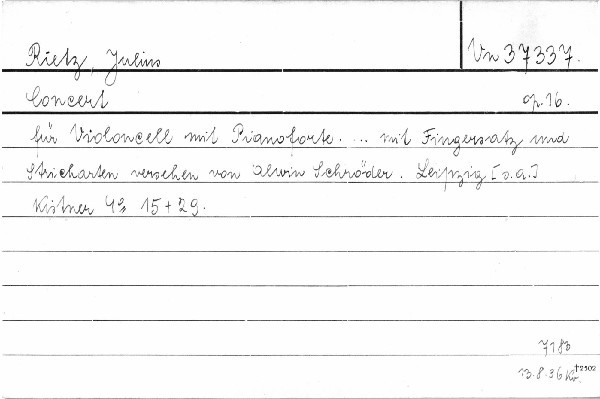 Rietz, Julius Vn 37337.
Concert op. 16.
für Violoncell mit Pianoforte. ... mit Fingersatz und
Stricharten versehen von Alwin Schröder. Leipzig [s.a.]
Kistner 4° 15 + 29.
7183
13.8.36 Kr. †2502